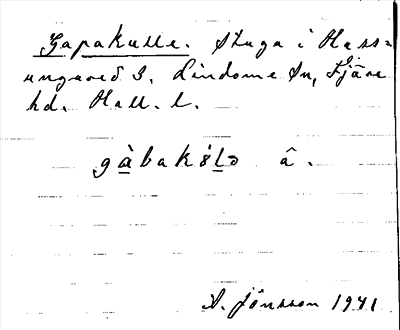 Gapakulle. Stuga i Hass=
ungared S. Lindome sn, Fjäre
hd. Hall. l.
gàbakŏ́lə â.
A. Jönsson 1941